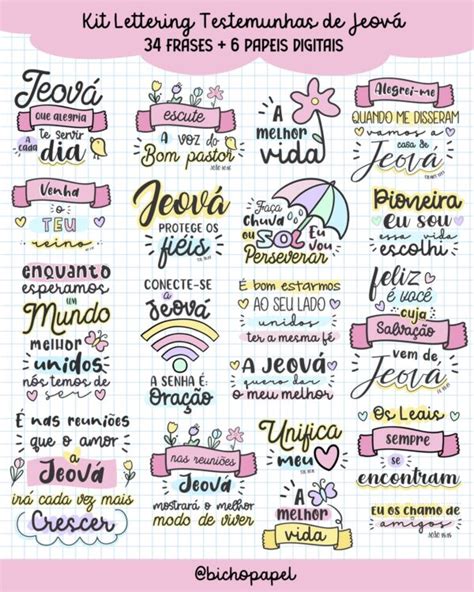 Kit Lettering Testemunhas de Jeová
34 FRASES + 6 PAPEIS DIGITAIS
Jeová
que alegria
te servir
a cada
dia
escute
A VOZ do
Bom pastor
A
melhor
vida
Alegrei-me
QUANDO ME DISSERAM
vamos a
casa de
Jeová
Venha
o
TEU
reino
Jeová
PROTEGE OS
fiéis
Faça
Chuva
ou
SOL
Eu
Vou
Perseverar
Pioneira
Eu sou
essa vida
escolhi
enquanto
esperamos
um
Mundo
melhor
unidos
nós temos de
ser
CONECTE-SE
a
Jeová
A SENHA É:
Oração
É bom estarmos
AO SEU LADO
unidos
ter a mesma fé
A JEOVÁ
quero dar
o meu melhor
feliz
é você
cuja
Salvação
vem de
Jeová
É nas reuniões
que o amor
a
Jeová
irá cada vez mais
Crescer
nas reuniões
Jeová
mostrará o melhor
modo de viver
Unifica
meu
A
melhor
vida
Os Leais
sempre
se
encontram
Eu os chamo de
amigos
@bichopapel